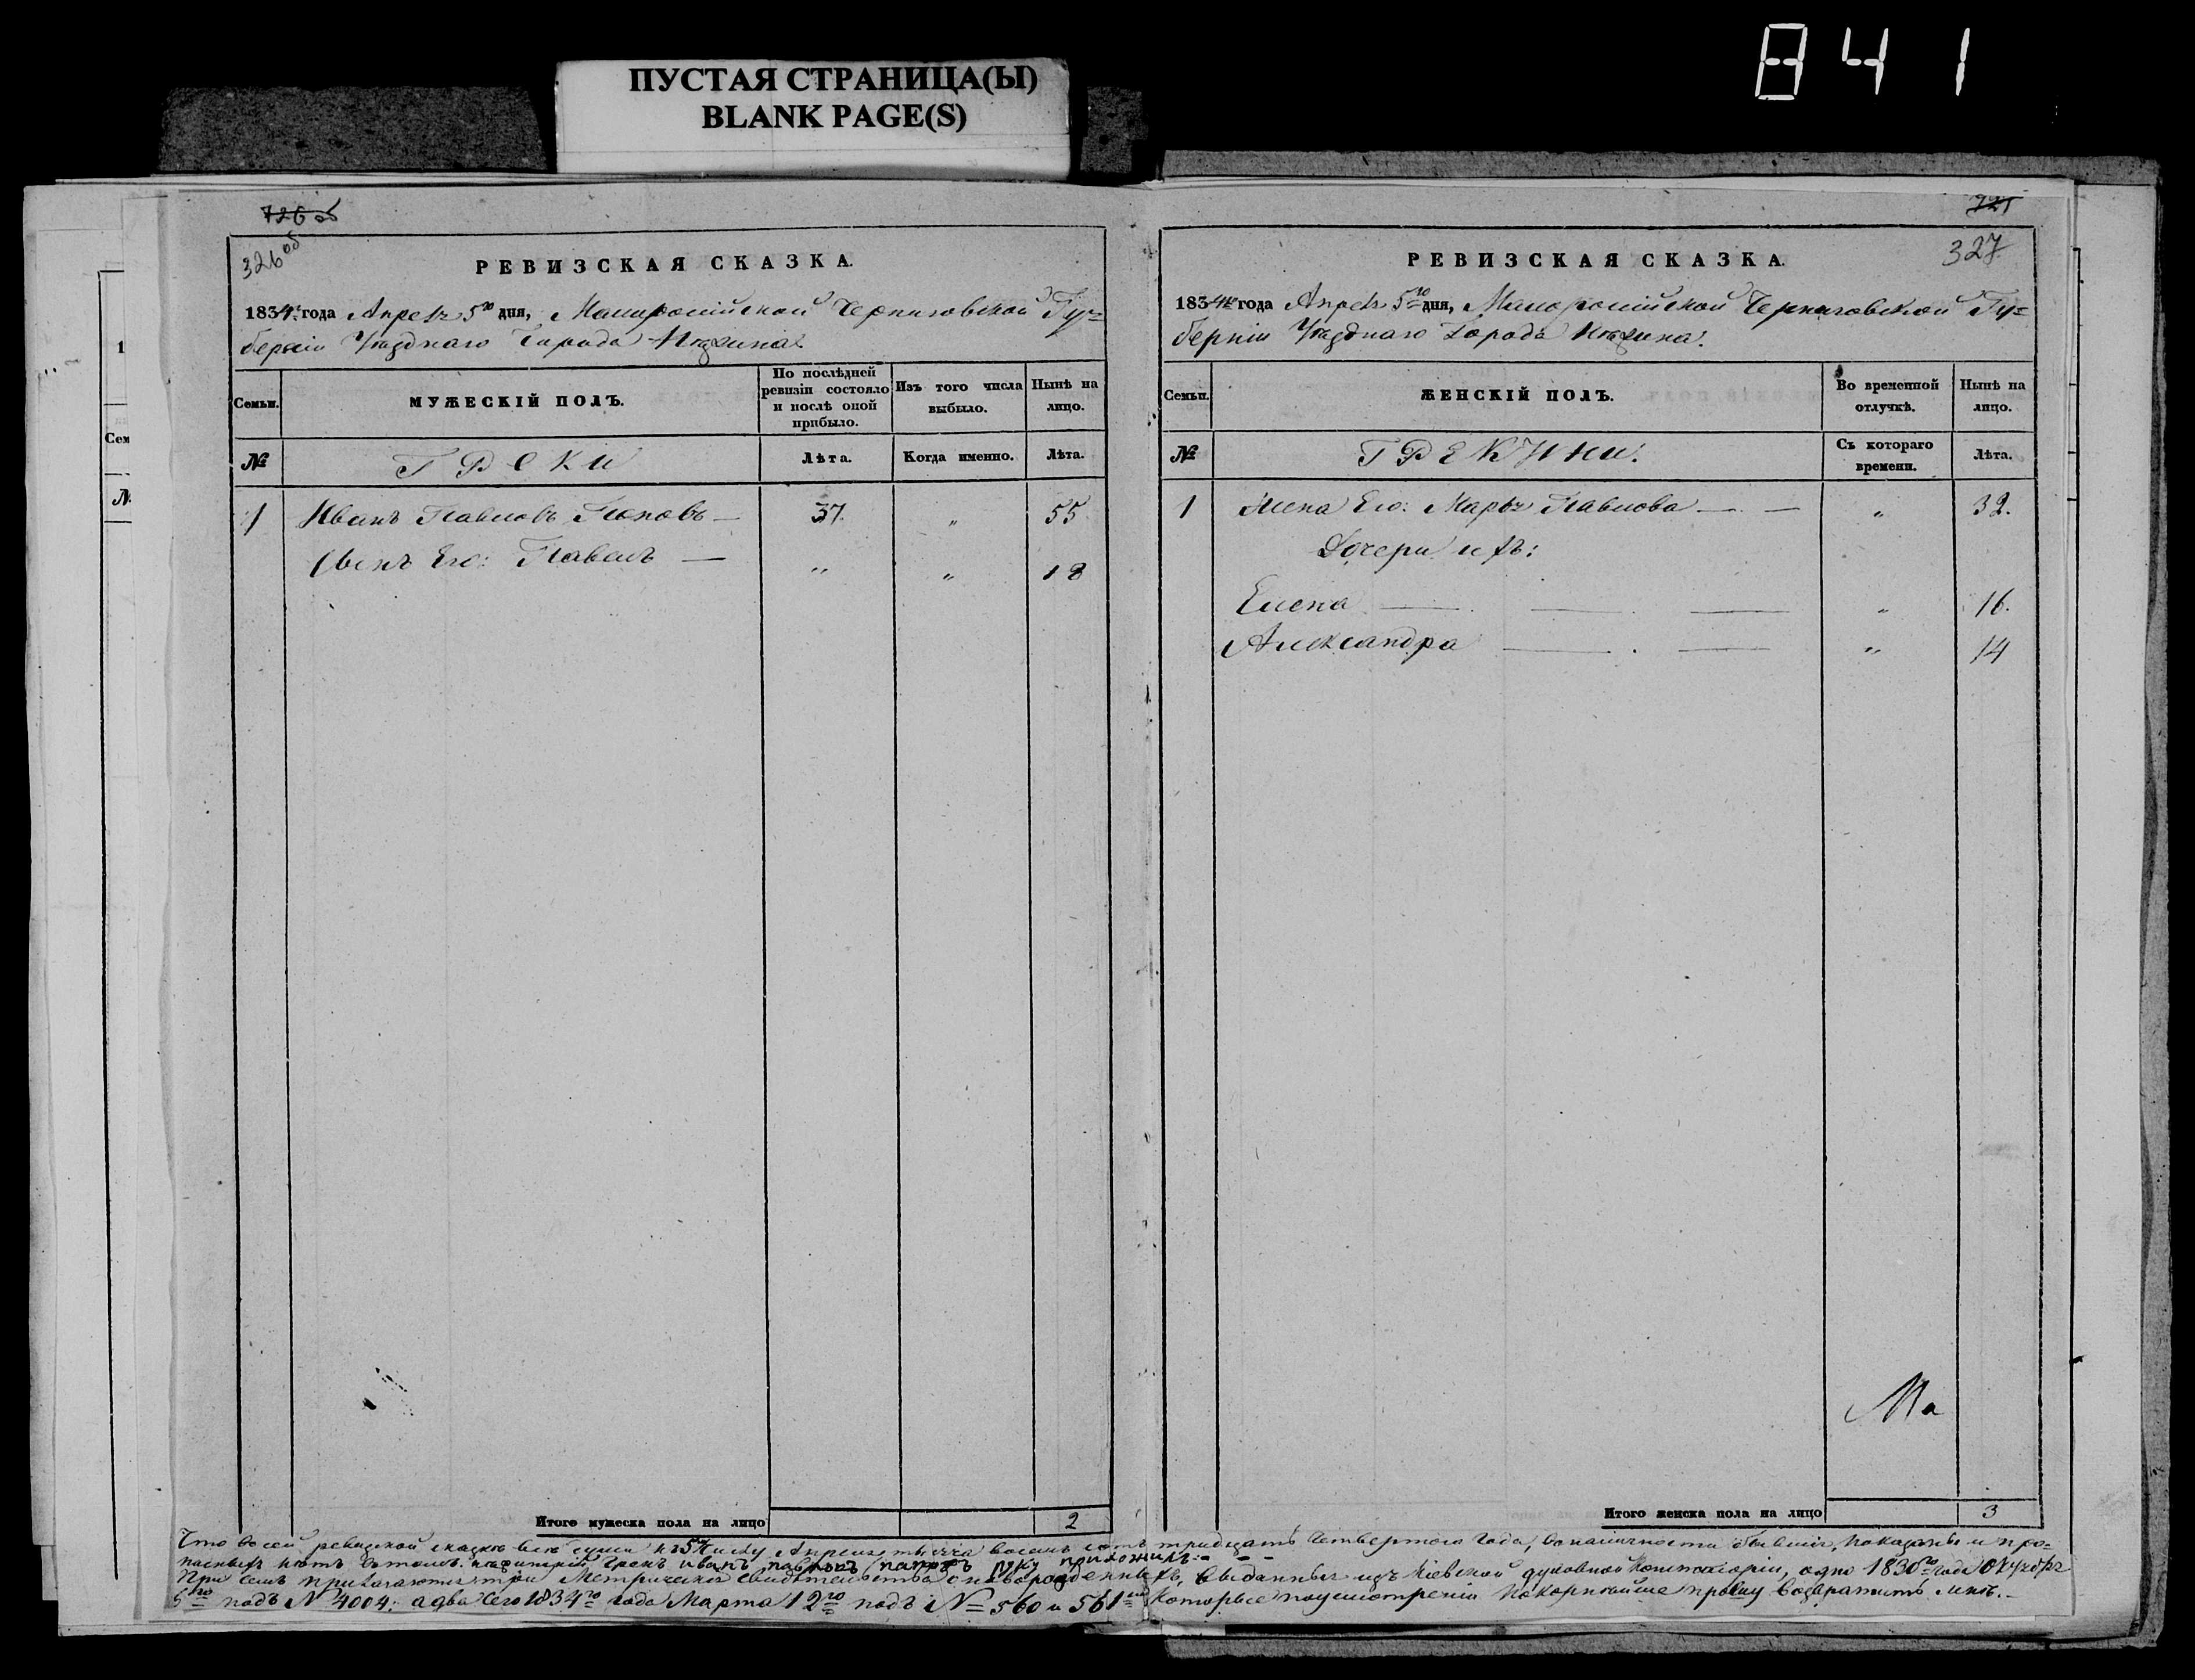 841
ПУСТАЯ СТРАНИЦА(Ы)
BLANK PAGE(S)
726 об
326 об
РЕВИЗСКАЯ СКАЗКА.
1834 года Апреля 5го дня, Малоросійской Черниговской Гу=
берніи Уѣзднаго Города Нѣжина.
Семьи.
МУЖЕСКІЙ ПОЛЪ.
По послѣдней ревизіи состояло и послѣ оной прибыло.
Изъ того числа выбыло.
Нынѣ на лицо.
№
ГРЕКИ
Лѣта.
Когда именно.
Лѣта.
1 Иванъ Павловъ Поповъ — 37. „ 55
Сынъ Его: Павелъ — „ „ 18
Итого мужеска пола на лицо 2
727
327
РЕВИЗСКАЯ СКАЗКА.
1834 года Апреля 5го дня, Малоросійской Черниговской Гу=
берніи Уѣзднаго Города Нѣжина.
Семьи.
ЖЕНСКІЙ ПОЛЪ.
Во временной отлучкѣ.
Нынѣ на лицо.
№
ГРЕКИНИ.
Съ котораго времени.
Лѣта.
1 Жена Его: Марья Павлова — — „ 32.
Дочери ихъ:
Елена — — — „ 16.
Александра — — „ 14
Ма
Итого женска пола на лицо 3
Что в сей ревизской сказкѣ всѣ души к 5 числу Апреля тысяча восемь сотъ тридцать четвертого года, в наличности бывшіе, показаны и про=
писныхъ нѣтъ в томъ нѣжинскій грекъ иванъ павловъ попов руку приложилъ
При семъ прилагаются три Метрическіе свидѣтельства о новорожденныхъ, выданныя изъ Кіевской духовной Консисторіи, одно 1830го года Октября
5го подъ № 4004: а два сего 1834го года Марта 12го подъ № 560 и 561 которые по усмотреніи покорнѣйше прошу возвратить мнѣ.